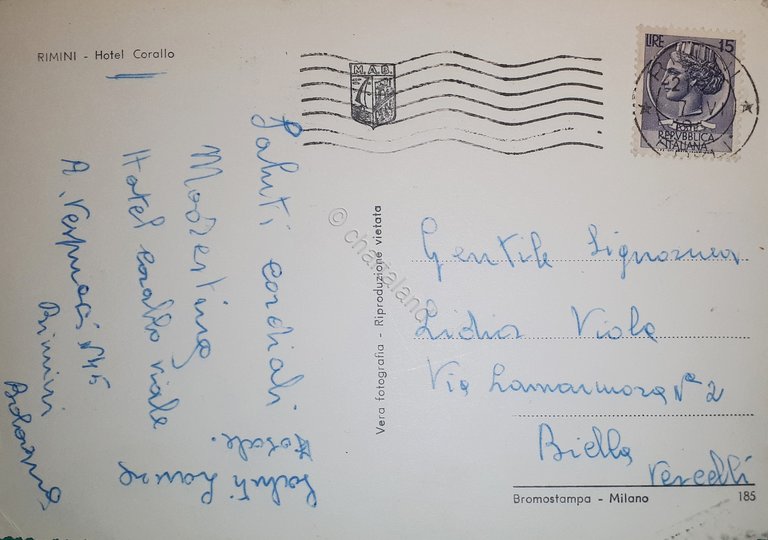 RIMINI - Hotel Corallo
M.A.B.
LIRE 15
REPVBBLICA
ITALIANA
Saluti cordiali.
Modestino
Hotel Corallo viale
A. Vespucci N° 45
Rimini
Saluti
© charaland
Vera fotografia - Riproduzione vietata
Gentile Signorina
Lidia Viola
Via Lamarmora N° 2
Biella
Vercelli
Bromostampa - Milano 185